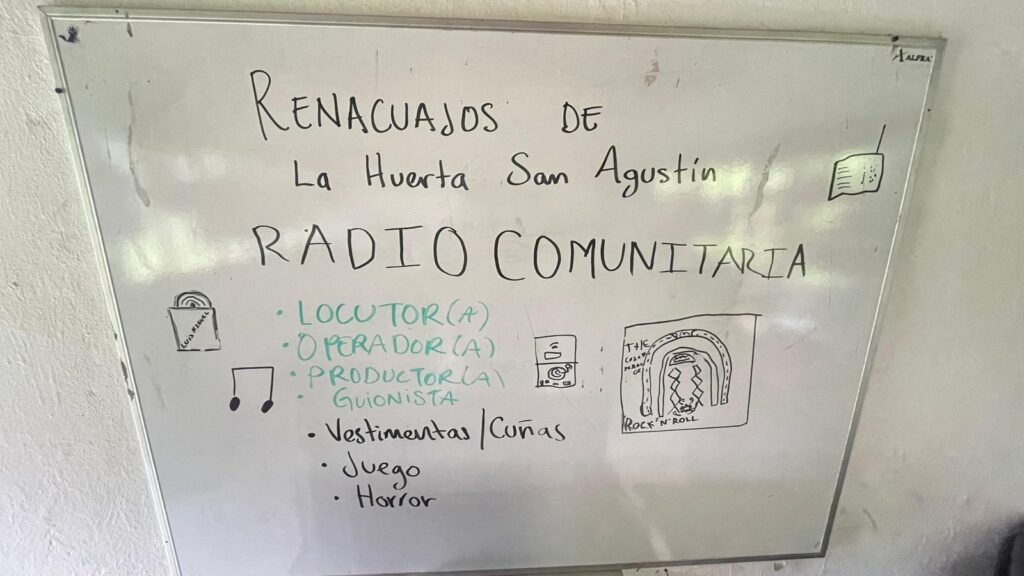 ALFRA
RENACUAJOS DE
La Huerta San Agustín
RADIO COMUNITARIA
• LOCUTOR(A)
• OPERADOR(A)
• PRODUCTOR(A)
• GUIONISTA
• Vestimentas/Cuñas
• Juego
• Horror
LUIS
ROCK'N'ROLL